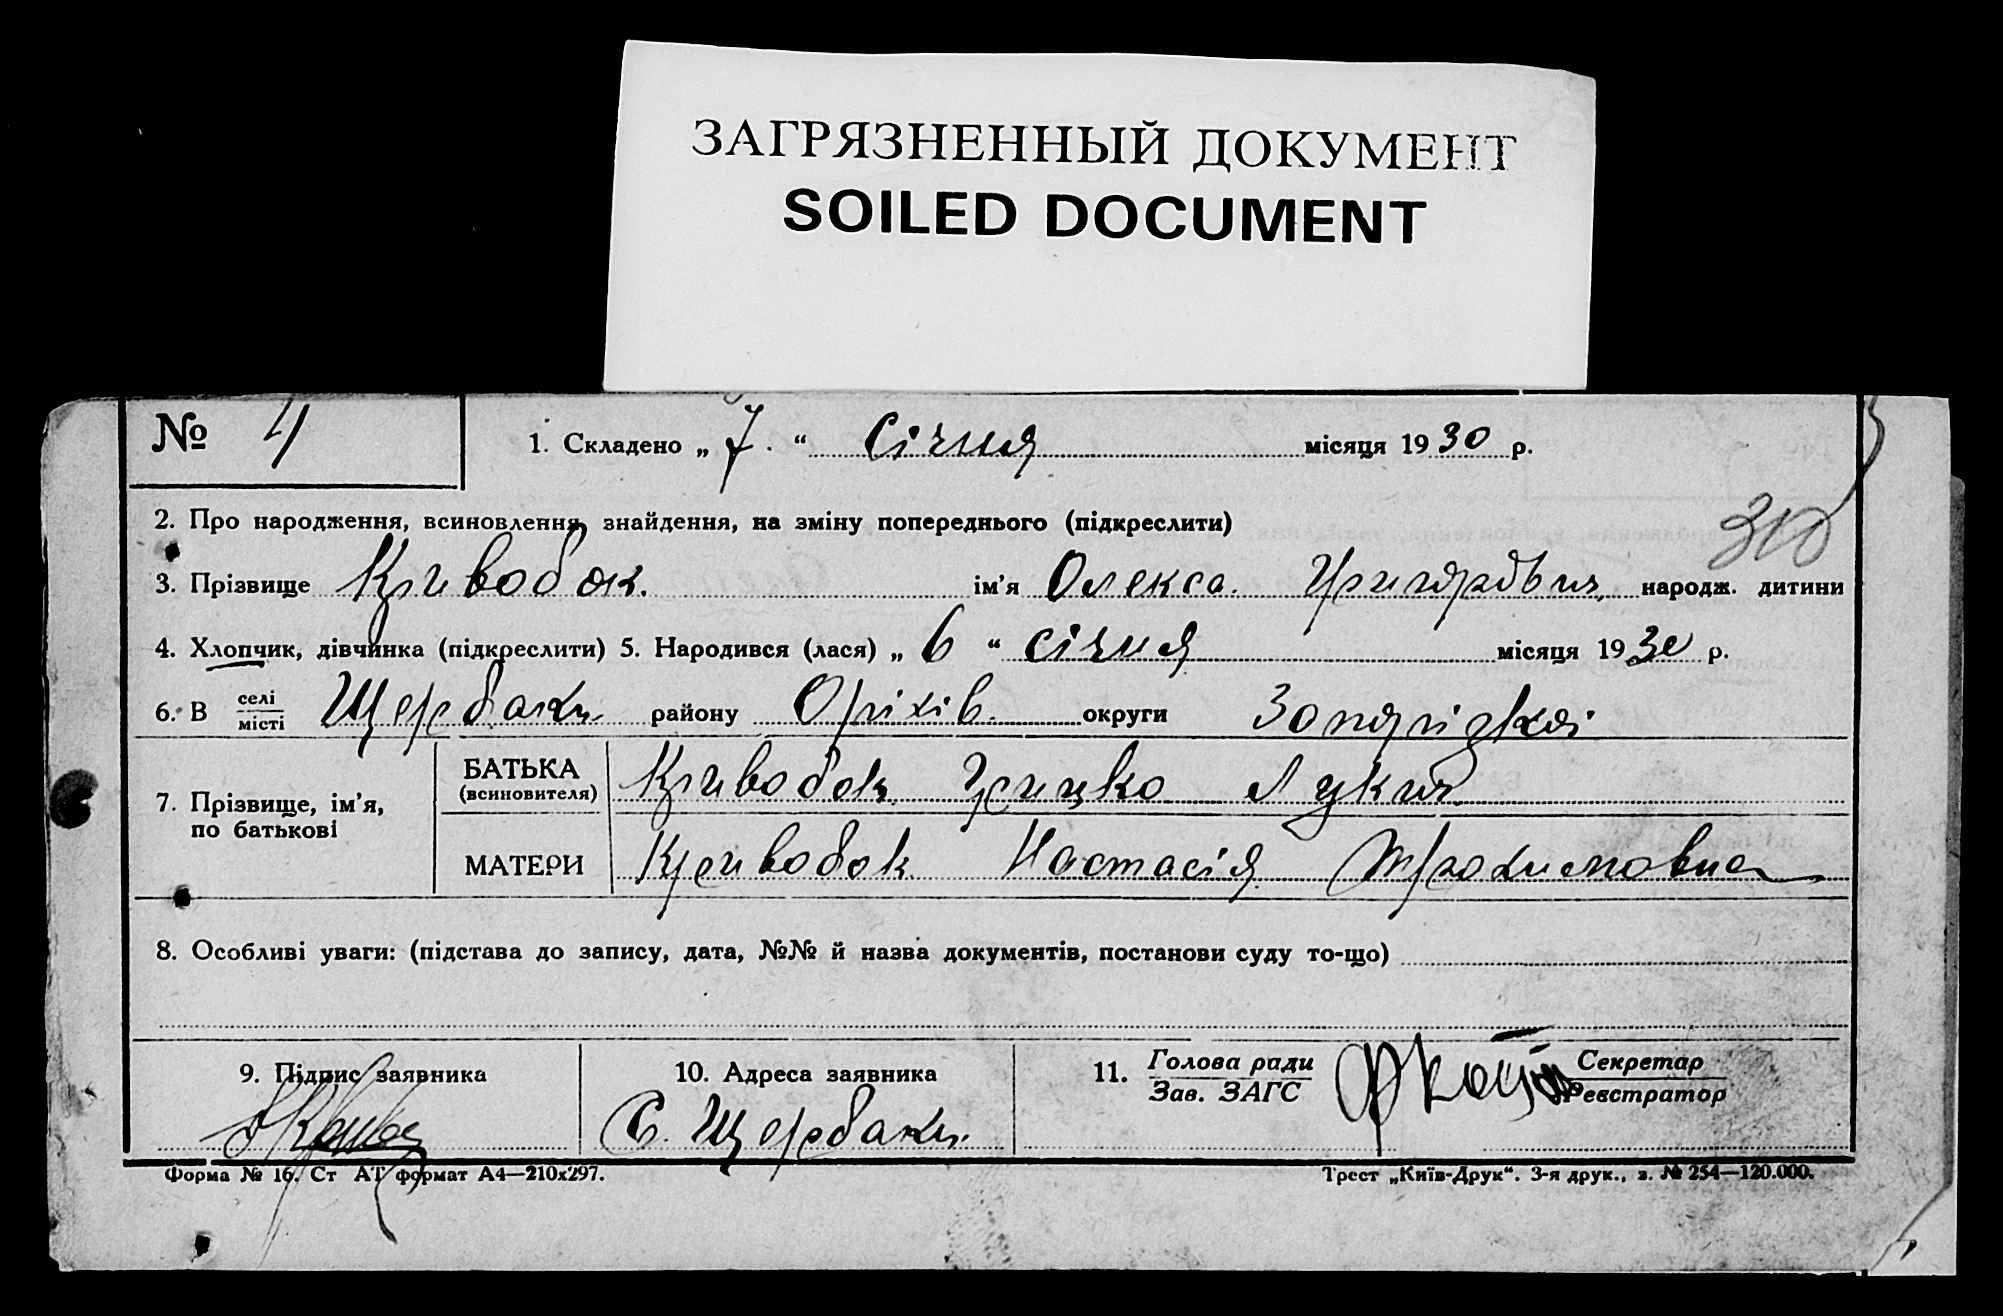 ЗАГРЯЗНЕННЫЙ ДОКУМЕНТ
SOILED DOCUMENT
№ 4 1. Складено „ 7 “ Січня місяця 1930 р.
2. Про народження, всиновлення, знайдення, на зміну попереднього (підкреслити)
310
3. Прізвище Кривобок. ім’я Олекса народж. дитини
4. Хлопчик, дівчинка (підкреслити) 5. Народився (лася) „ 6 “ січня місяця 1930 р.
6. В селі / місті Щербаки району Оріхів. округи
7. Прізвище, ім’я, по батькові
БАТЬКА (всиновителя) Кривобок Грицко
МАТЕРИ Кривобок Настасія Трохимовна
8. Особливі уваги: (підстава до запису, дата, №№ й назва документів, постанови суду то-що)
9. Підпис заявника 10. Адреса заявника 11. Голова ради / Зав. ЗАГС Секретар / Реєстратор
С. Щербаки
Форма № 16. Ст АТ формат А4—210х297. Трест „Київ-Друк“. 3-я друк., з. № 254—120.000.